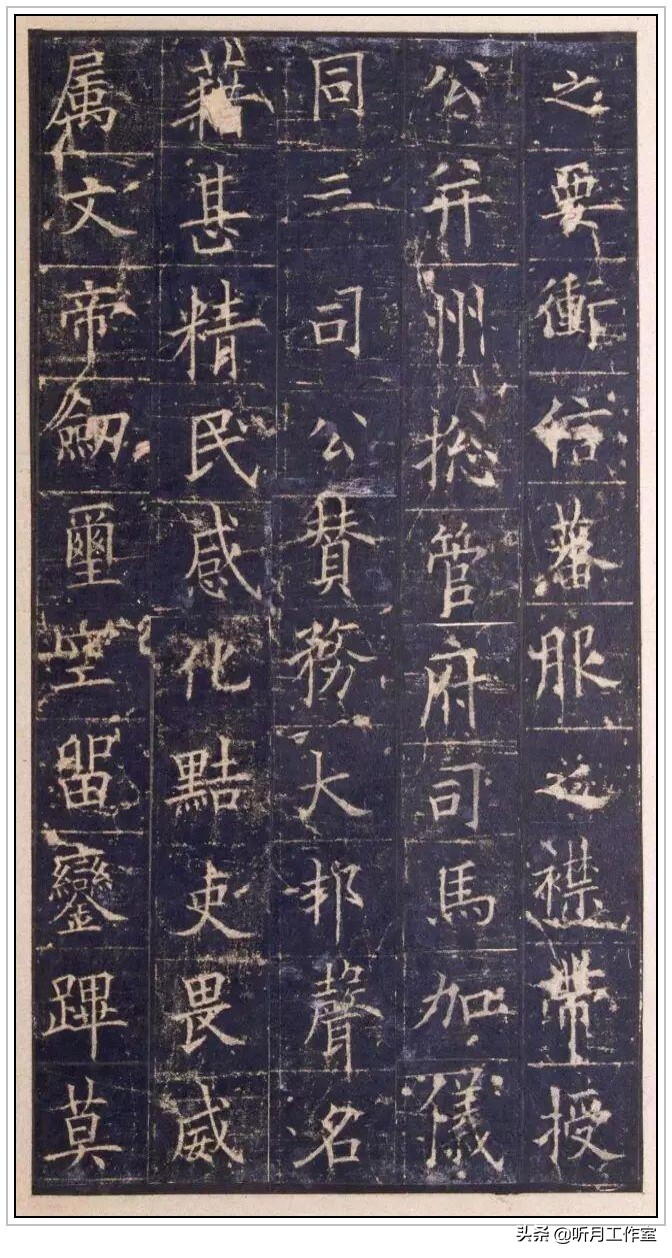 之要衝信蕃服之襟帶授
公并州揔管府司馬加儀
同三司公贊務大邦聲名
藉甚精民感化黠吏畏威
属文帝劒璽空留鑾蹕莫
头条 @听月工作室